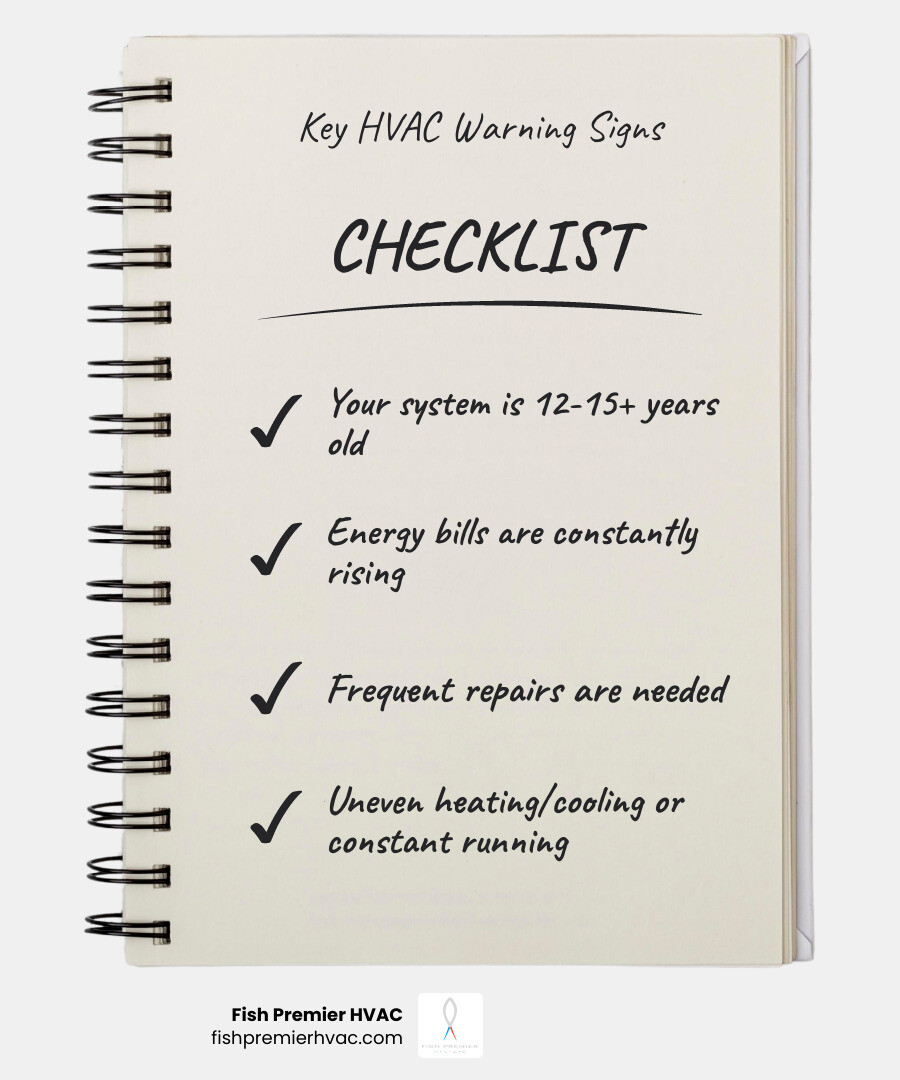 Key HVAC Warning Signs
CHECKLIST
Your system is 12-15+ years
old
Energy bills are constantly
rising
Frequent repairs are needed
Uneven heating/cooling or
constant running
Fish Premier HVAC
fishpremierhvac.com
FISH PREMIER